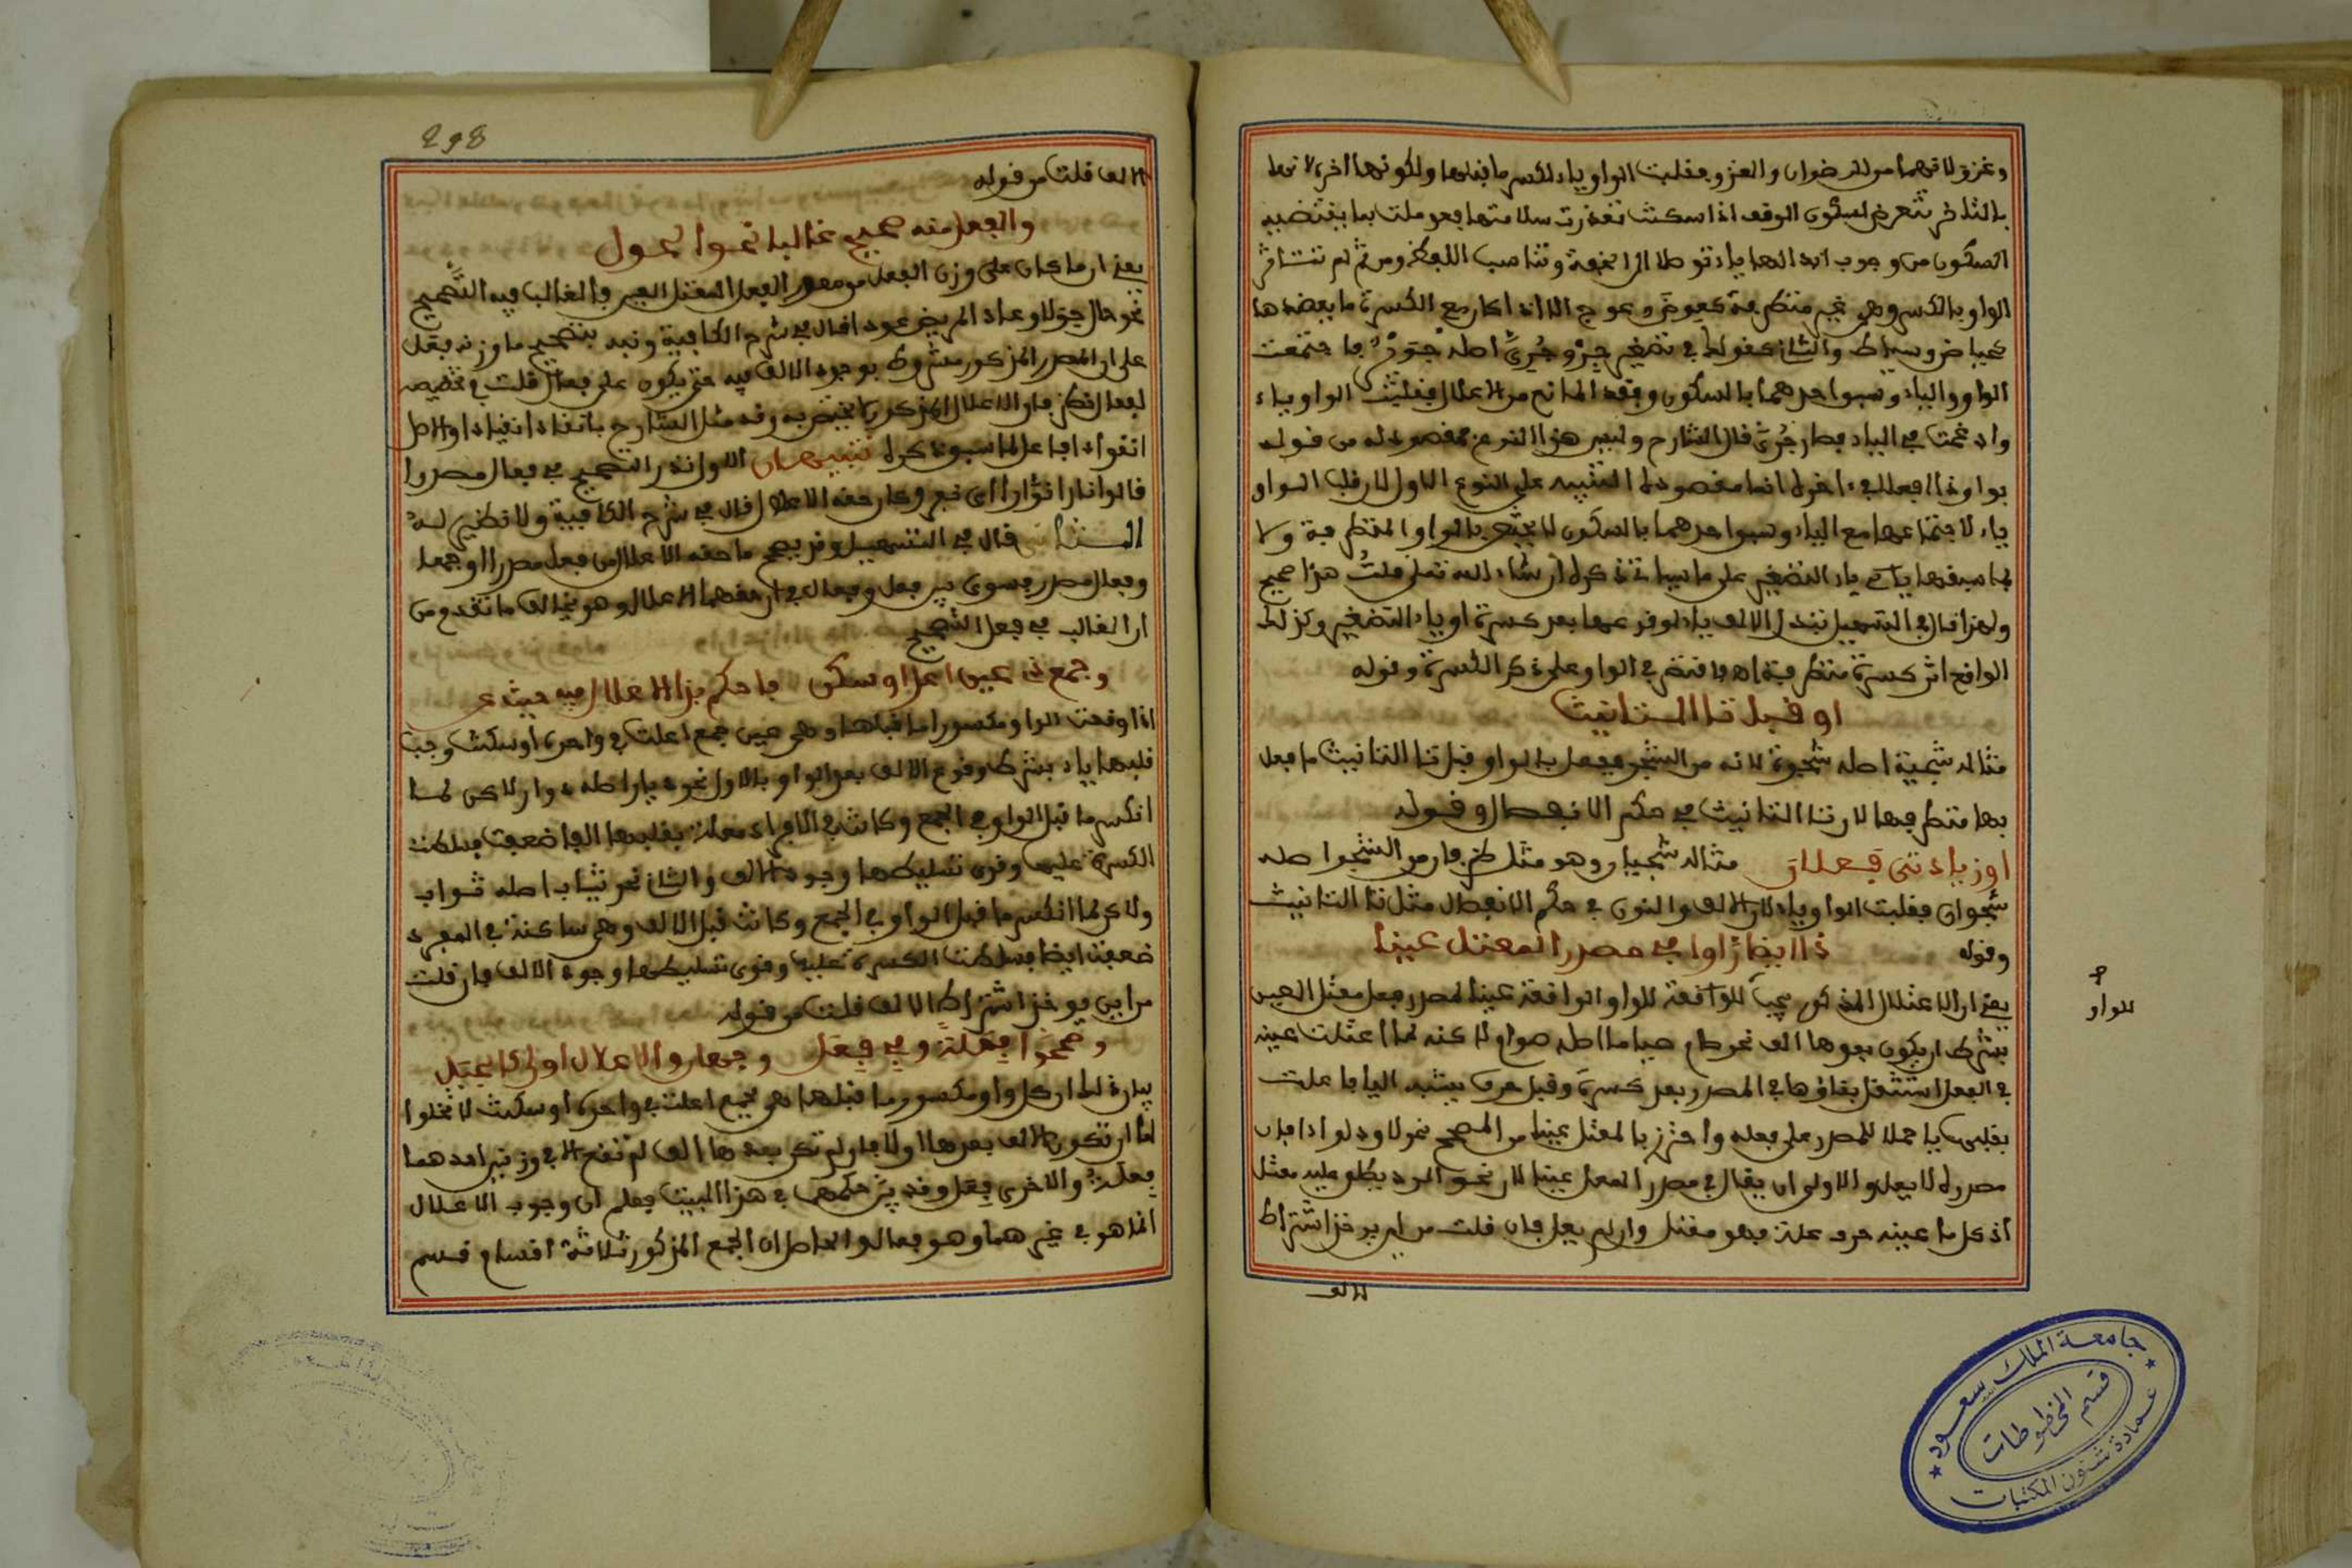 وغزي لانهما من الرضوان والغزو فقلبت الواو ياء لكسر ما قبلها ولكونها اخرا لانها
بالتاخر تتعرض لسكون الوقف اذا سكنت تعذرت سلامتها فعوملت بما يقتضيه
السكون من وجوب ابدالها ياء توصلا الى الخفة وتناسب اللفظ ومن ثم لم تتاثر
الواو بالكسر وهي غير متطرفة كعوض وعوج الا اذا كان مع الكسرة ما يعضدها
كحياض وسياط والثاني كقولك في تصغير جرو جري اصله جريو فاجتمعت
الواو والياء وسبق احدهما بالسكون وفقد المانع من الاعلال فقلبت الواو ياء
وادغمت في الياء فصار جري قال الشارح وليس هذا النوع مقصودا له من قوله
بواو ذا افعلا في اخر انما مقصوده التنبيه على النوع الاول لان قلب الواو
ياء لاجتماعها مع الياء وسبق احدهما بالسكون لا يختص بالواو المتطرفة ولا
بما سبقها ياء التصغير على ما سياتي ذكره ان شاء الله تعلى قلت هذا صحيح
ولهذا قال في التسهيل تبدل الالف ياء لوقوعها بعد كسرة او ياء التصغير وكذلك
الواقع اثر كسرة متطرفة اه فاقتصر في الواو على ذكر الكسرة وقوله
او قبل تا التانيث
مثاله شجية اصله شجوة لانه من الشجو ففعل بالواو قبل تا التانيث ما فعل
بها متطرفة لان تا التانيث في حكم الانفصال وقوله
او زيادتي فعلان مثاله شجيان وهو مثل ظربان من الشجو اصله
شجوان فقلبت الواو ياء لان الالف والنون في حكم الانفصال مثل تا التانيث
وقوله ذا ايضا راوا في مصدر المعتل عينا
يعني ان الاعلال المذكور يجب للواو الواقعة عينا لمصدر فعل معتل العين
بشرط ان يكون بعدها الف نحو صام صياما اصله صوام لاكنه لما اعتلت عينه
في الفعل استثقل بقاؤها في المصدر بعد كسرة وقبل حرف يشبه اليا فاعلت
بقلبها يا حملا للمصدر على فعله واحترز بالمعتل عينا من المصحح نحو لاوذ لواذا فان
مصدره لا يعل والاولى ان يقال في مصدر المعل عينا لان نحو لاوذ يطلق عليه معتل
اذ كل ما عينه حرف علة فهو معتل وان لم يعل فان قلت من اين يوخذ اشتراط
الالف
للواو
298
الالف قلت من قوله
والفعل منه صحيح غالبا نحو الحول
يعني ان ما كان على وزن الفعل من مصدر الفعل المعتل العين فالغالب فيه التصحيح
نحو حال حولا وعاد المريض عودا قال في شرح الكافية ونبه بتصحيح ما وزنه فعل
على ان المصدر المذكور مشروط بوجود الالف فيه حتى يكون على فعال قلت في تخصيصه
بفعال نظر فان الاعلال المذكور لا يختص به وقد مثل الشارح بانقاد انقيادا والاصل
انقوادا فاعل لما سبق ذكره تنبيهان الاول نذر التصحيح في فعال مصدرا
قالوا نار نوارا اي نفر وكان حقه الاعلال قال في شرح الكافية ولا نظير له
الثاني قال في التسهيل وقد يصحح ما حقه الاعلال من فعل مصدرا او جمعا
وفعال مصدرا فسوى بين فعل وفعال في ان حقهما الاعلال وهو يخالف ما تقدم من
ان الغالب في فعل التصحيح
وجمع ذي عين اعل او سكن فاحكم بذا الاعلال فيه حيث عن
اذا وقعت الواو مكسورا ما قبلها وهي عين جمع اعلت في واحده او سكنت وجب
قلبها ياء بشرط وقوع الالف بعد الواو فالاول نحو ديار اصله دوار لاكن لما
انكسر ما قبل الواو في الجمع وكانت في الافراد معلة بقلبها الفا ضعفت فسلطت
الكسرة عليها وقوى تسليطها وجود الالف والثاني نحو ثياب اصله ثواب
ولاكن لما انكسر ما قبل الواو في الجمع وكانت قبل الالف وهي ساكنة في المفرد
ضعفت ايضا فسلطت الكسرة عليها وقوى تسليطها وجود الالف فان قلت
من اين يوخذ اشتراط الالف قلت من قوله
وصححوا فعلة وفي فعل وجهان والاعلال اولى كالحيل
يدل ان كل واو مكسور ما قبلها هي جمع اعلت في واحده او سكنت لا تخلوا
اما ان تكون الالف بعدها اولا فان لم تكن بعدها الف لم تقع الا في وزنين احدهما
فعلة والاخرى فعل وقد بين حكمهما في هذا البيت فعلم ان وجوب الاعلال
انما هو في غيرهما وهو فعال والحاصل ان الجمع المذكور ثلاثة اقسام قسم
جامعة الملك سعود
قسم المخطوطات
عمادة شئون المكتبات